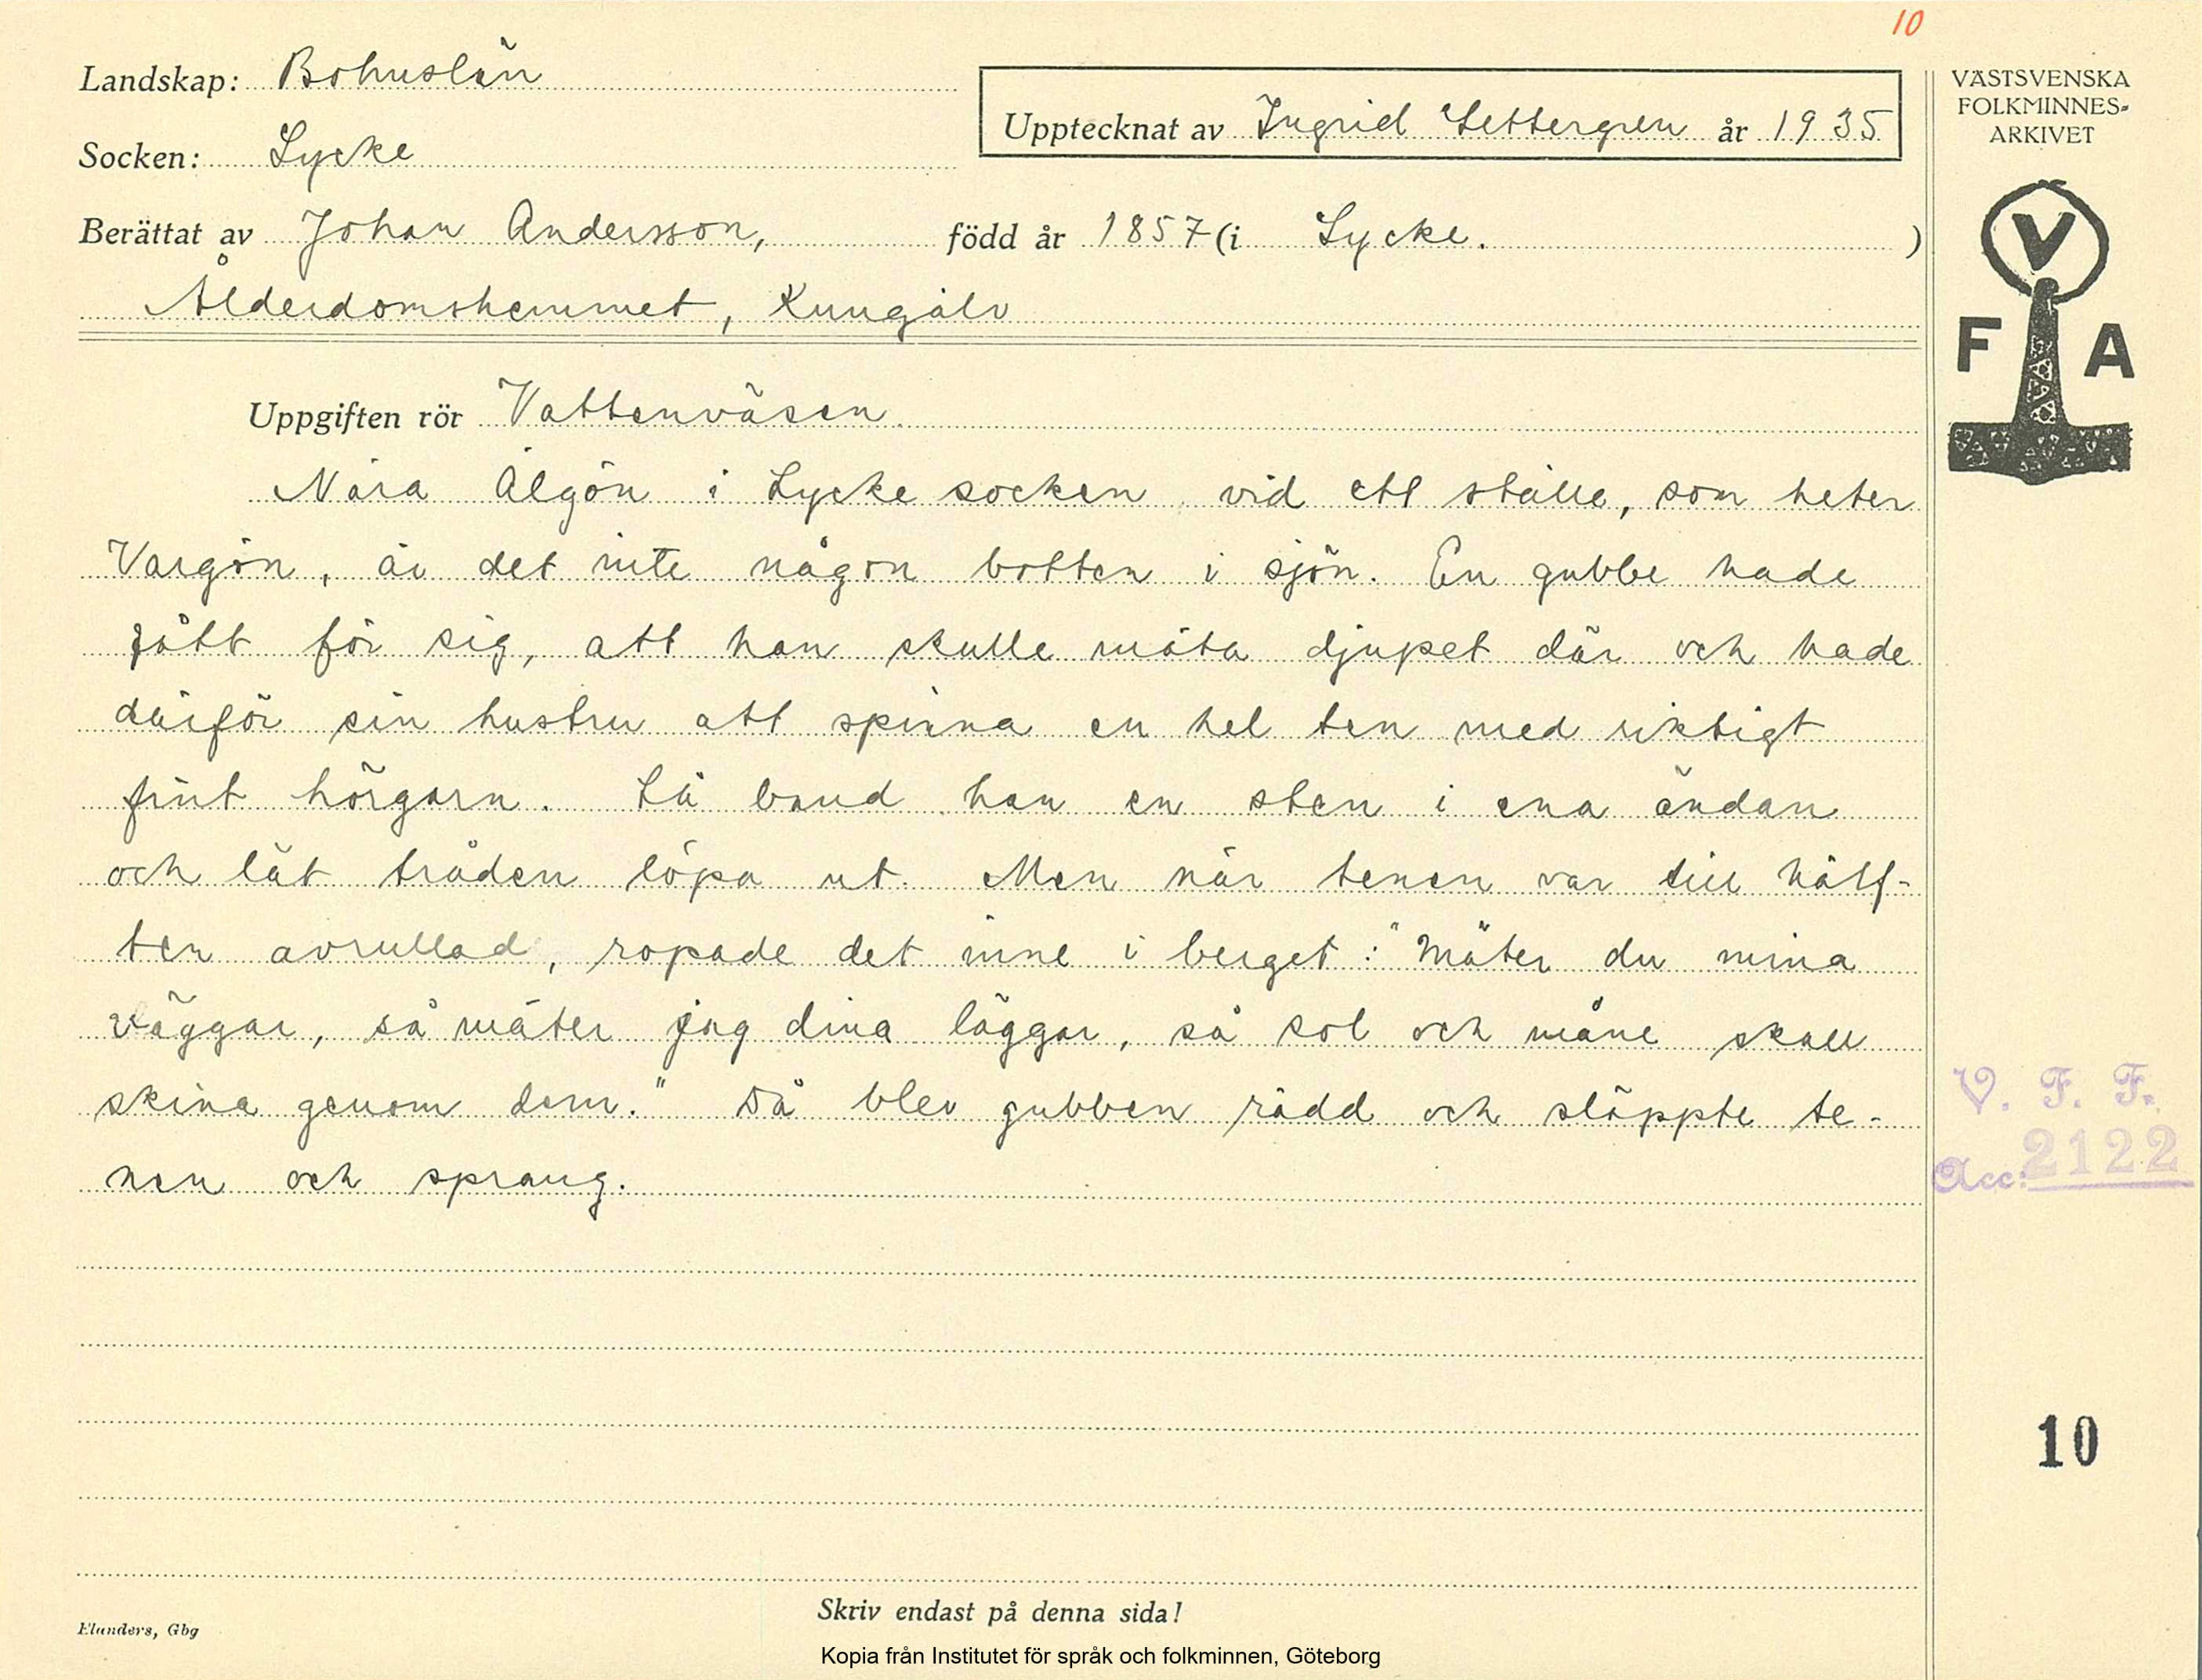 10
Landskap: Bohuslän
Upptecknat av Ingrid Settergren år 1935
VÄSTSVENSKA
FOLKMINNES-
ARKIVET
Socken: Lycke
Berättat av Johan Andersson, född år 1857 (i Lycke. )
Ålderdomshemmet, Kungälv
V
F A
Uppgiften rör Vattenväsen.
Nära Älgön i Lycke socken, vid ett ställe, som heter
Vargön, är det inte någon botten i sjön. En gubbe hade
fått för sig, att han skulle mäta djupet där och hade
därför sin hustru att spinna en hel ten med riktigt
fint hörgarn. Så band han en sten i ena ändan
och lät tråden löpa ut. Men när tenen var till hälf-
ten avrullad, ropade det inne i berget: "Mäter du mina
väggar, så mäter jag dina läggar, så sol och måne skall
skina genom dem." Då blev gubben rädd och släppte te-
nen och sprang.
V. F. F.
Acc: 2122
10
Skriv endast på denna sida!
Elanders, Gbg
Kopia från Institutet för språk och folkminnen, Göteborg